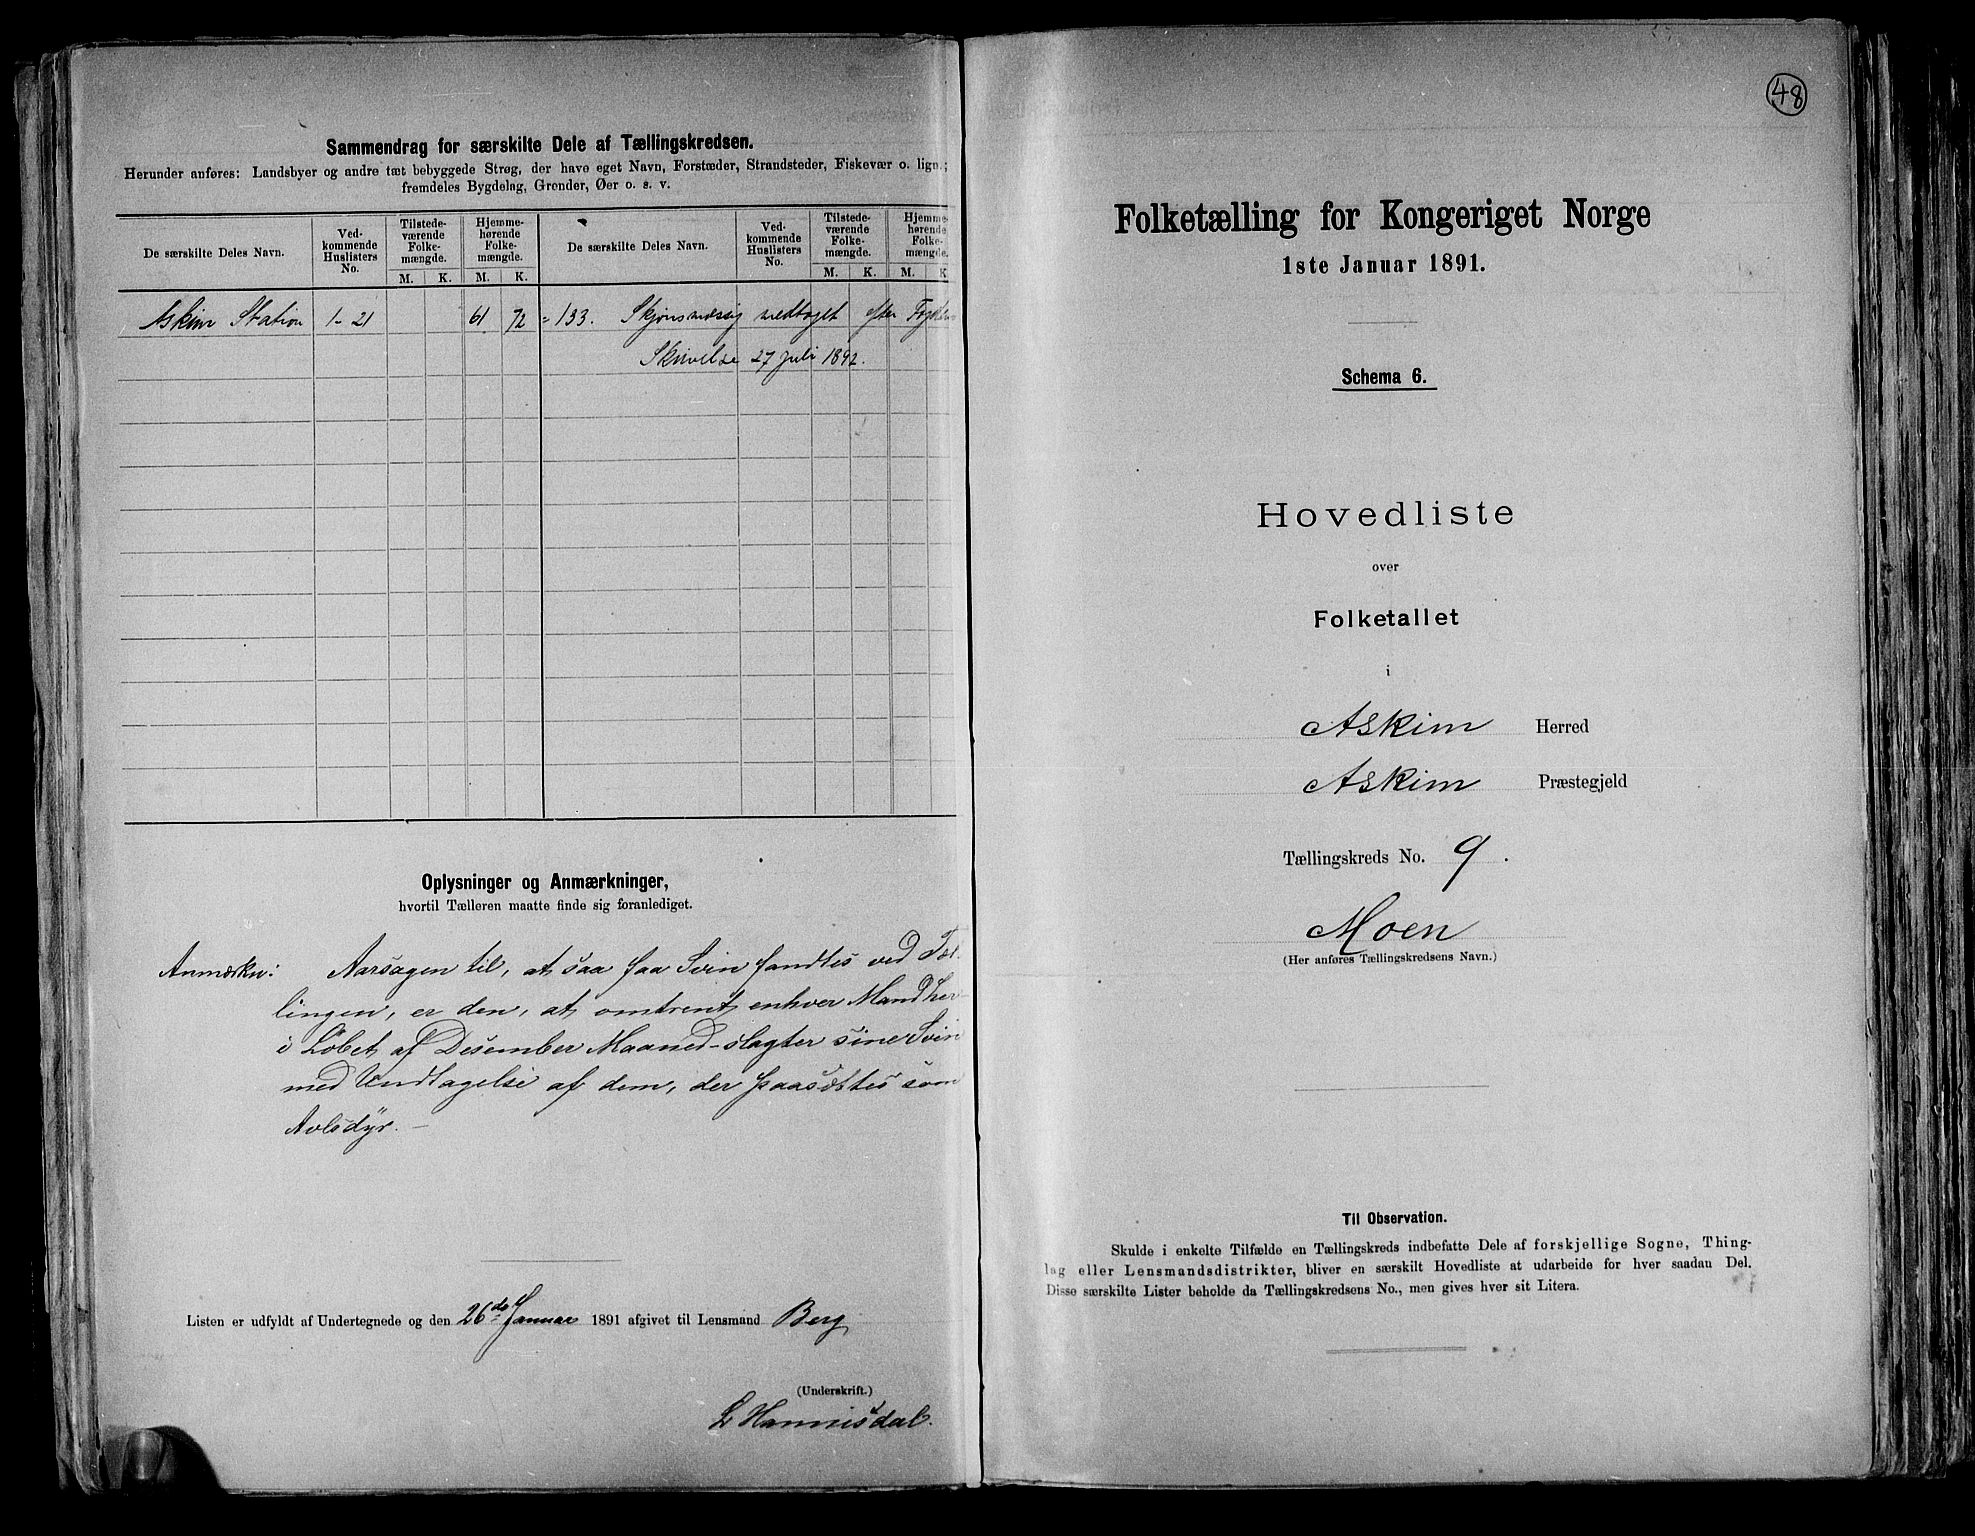 Sammendrag for særskilte Dele af Tællingskredsen.
Herunder anføres: Landsbyer og andre tæt bebyggede Strøg, der have eget Navn, Forstæder, Strandsteder, Fiskevær o. lign.;
fremdeles Bygdelag, Grender, Øer o. s. v.
De særskilte Deles Navn. Ved-kommende Huslisters No. Tilstede-værende Folke-mængde. Hjemme-hørende Folke-mængde. De særskilte Deles Navn. Ved-kommende Huslisters No. Tilstede-værende Folke-mængde. Hjemme-hørende Folke-mængde.
M. K. M. K. M. K. M. K.
Askim Station 1-21 61 72 = 133. Skjønsmæssig vedtaget efter
Skrivelse 27 Juli 1892.
Oplysninger og Anmærkninger,
hvortil Tælleren maatte finde sig foranlediget.
Anmærkn: Aarsagen til, at saa faa Svin fandtes ved Tæl-
lingen, er den, at omtrent enhver Mand her
i Løbet af Desember Maaned slagter sine Svin
med Undtagelse af dem, der paasættes som
Avlsdyr. —
Listen er udfyldt af Undertegnede og den 26de Januar 1891 afgivet til Lensmand Berg
(Underskrift.)
L Hannisdal.
48
Folketælling for Kongeriget Norge
1ste Januar 1891.
Schema 6.
Hovedliste
over
Folketallet
i
Askim Herred
Askim Præstegjeld
Tællingskreds No. 9.
Moen
(Her anføres Tællingskredsens Navn.)
Til Observation.
Skulde i enkelte Tilfælde en Tællingskreds indbefatte Dele af forskjellige Sogne, Thing-
lag eller Lensmandsdistrikter, bliver en særskilt Hovedliste at udarbeide for hver saadan Del.
Disse særskilte Lister beholde da Tællingskredsens No., men gives hver sit Litera.